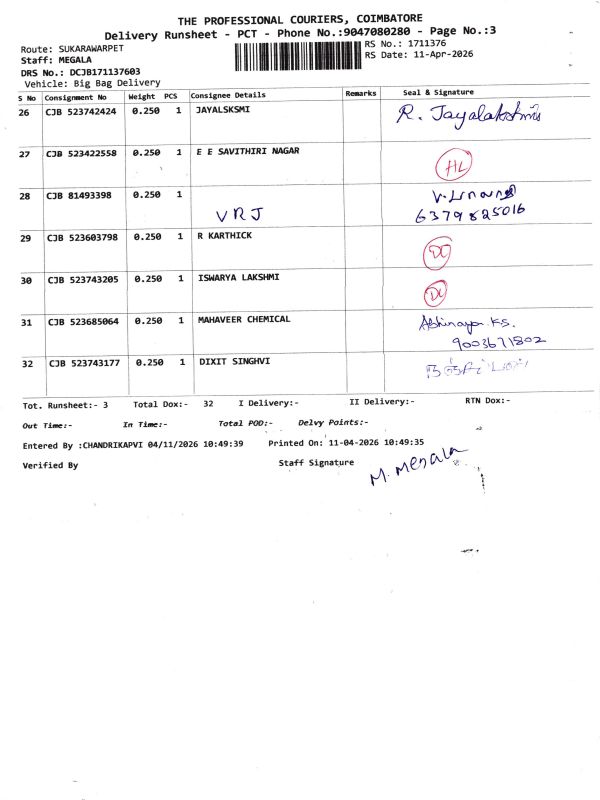 THE PROFESSIONAL COURIERS, COIMBATORE
Delivery Runsheet - PCT - Phone No.:9047080280 - Page No.:3
Route: SUKARAWARPET
RS No.: 1711376
Staff: MEGALA
RS Date: 11-Apr-2026
DRS No.: DCJB171137603
Vehicle: Big Bag Delivery
S No Consignment No Weight PCS Consignee Details Remarks Seal & Signature
26 CJB 523742424 0.250 1 JAYALSKSMI R. Jayalakshmi
27 CJB 523422558 0.250 1 E E SAVITHIRI NAGAR HL
28 CJB 81493398 0.250 1
VRJ 6379825016
29 CJB 523603798 0.250 1 R KARTHICK DC
30 CJB 523743205 0.250 1 ISWARYA LAKSHMI DC
31 CJB 523685064 0.250 1 MAHAVEER CHEMICAL Abhinaya K.S.
9003671802
32 CJB 523743177 0.250 1 DIXIT SINGHVI
Tot. Runsheet:- 3 Total Dox:- 32 I Delivery:- II Delivery:- RTN Dox:-
Out Time:- In Time:- Total POD:- Delvy Points:-
Entered By :CHANDRIKAPVI 04/11/2026 10:49:39 Printed On: 11-04-2026 10:49:35
Verified By Staff Signature M. Megala